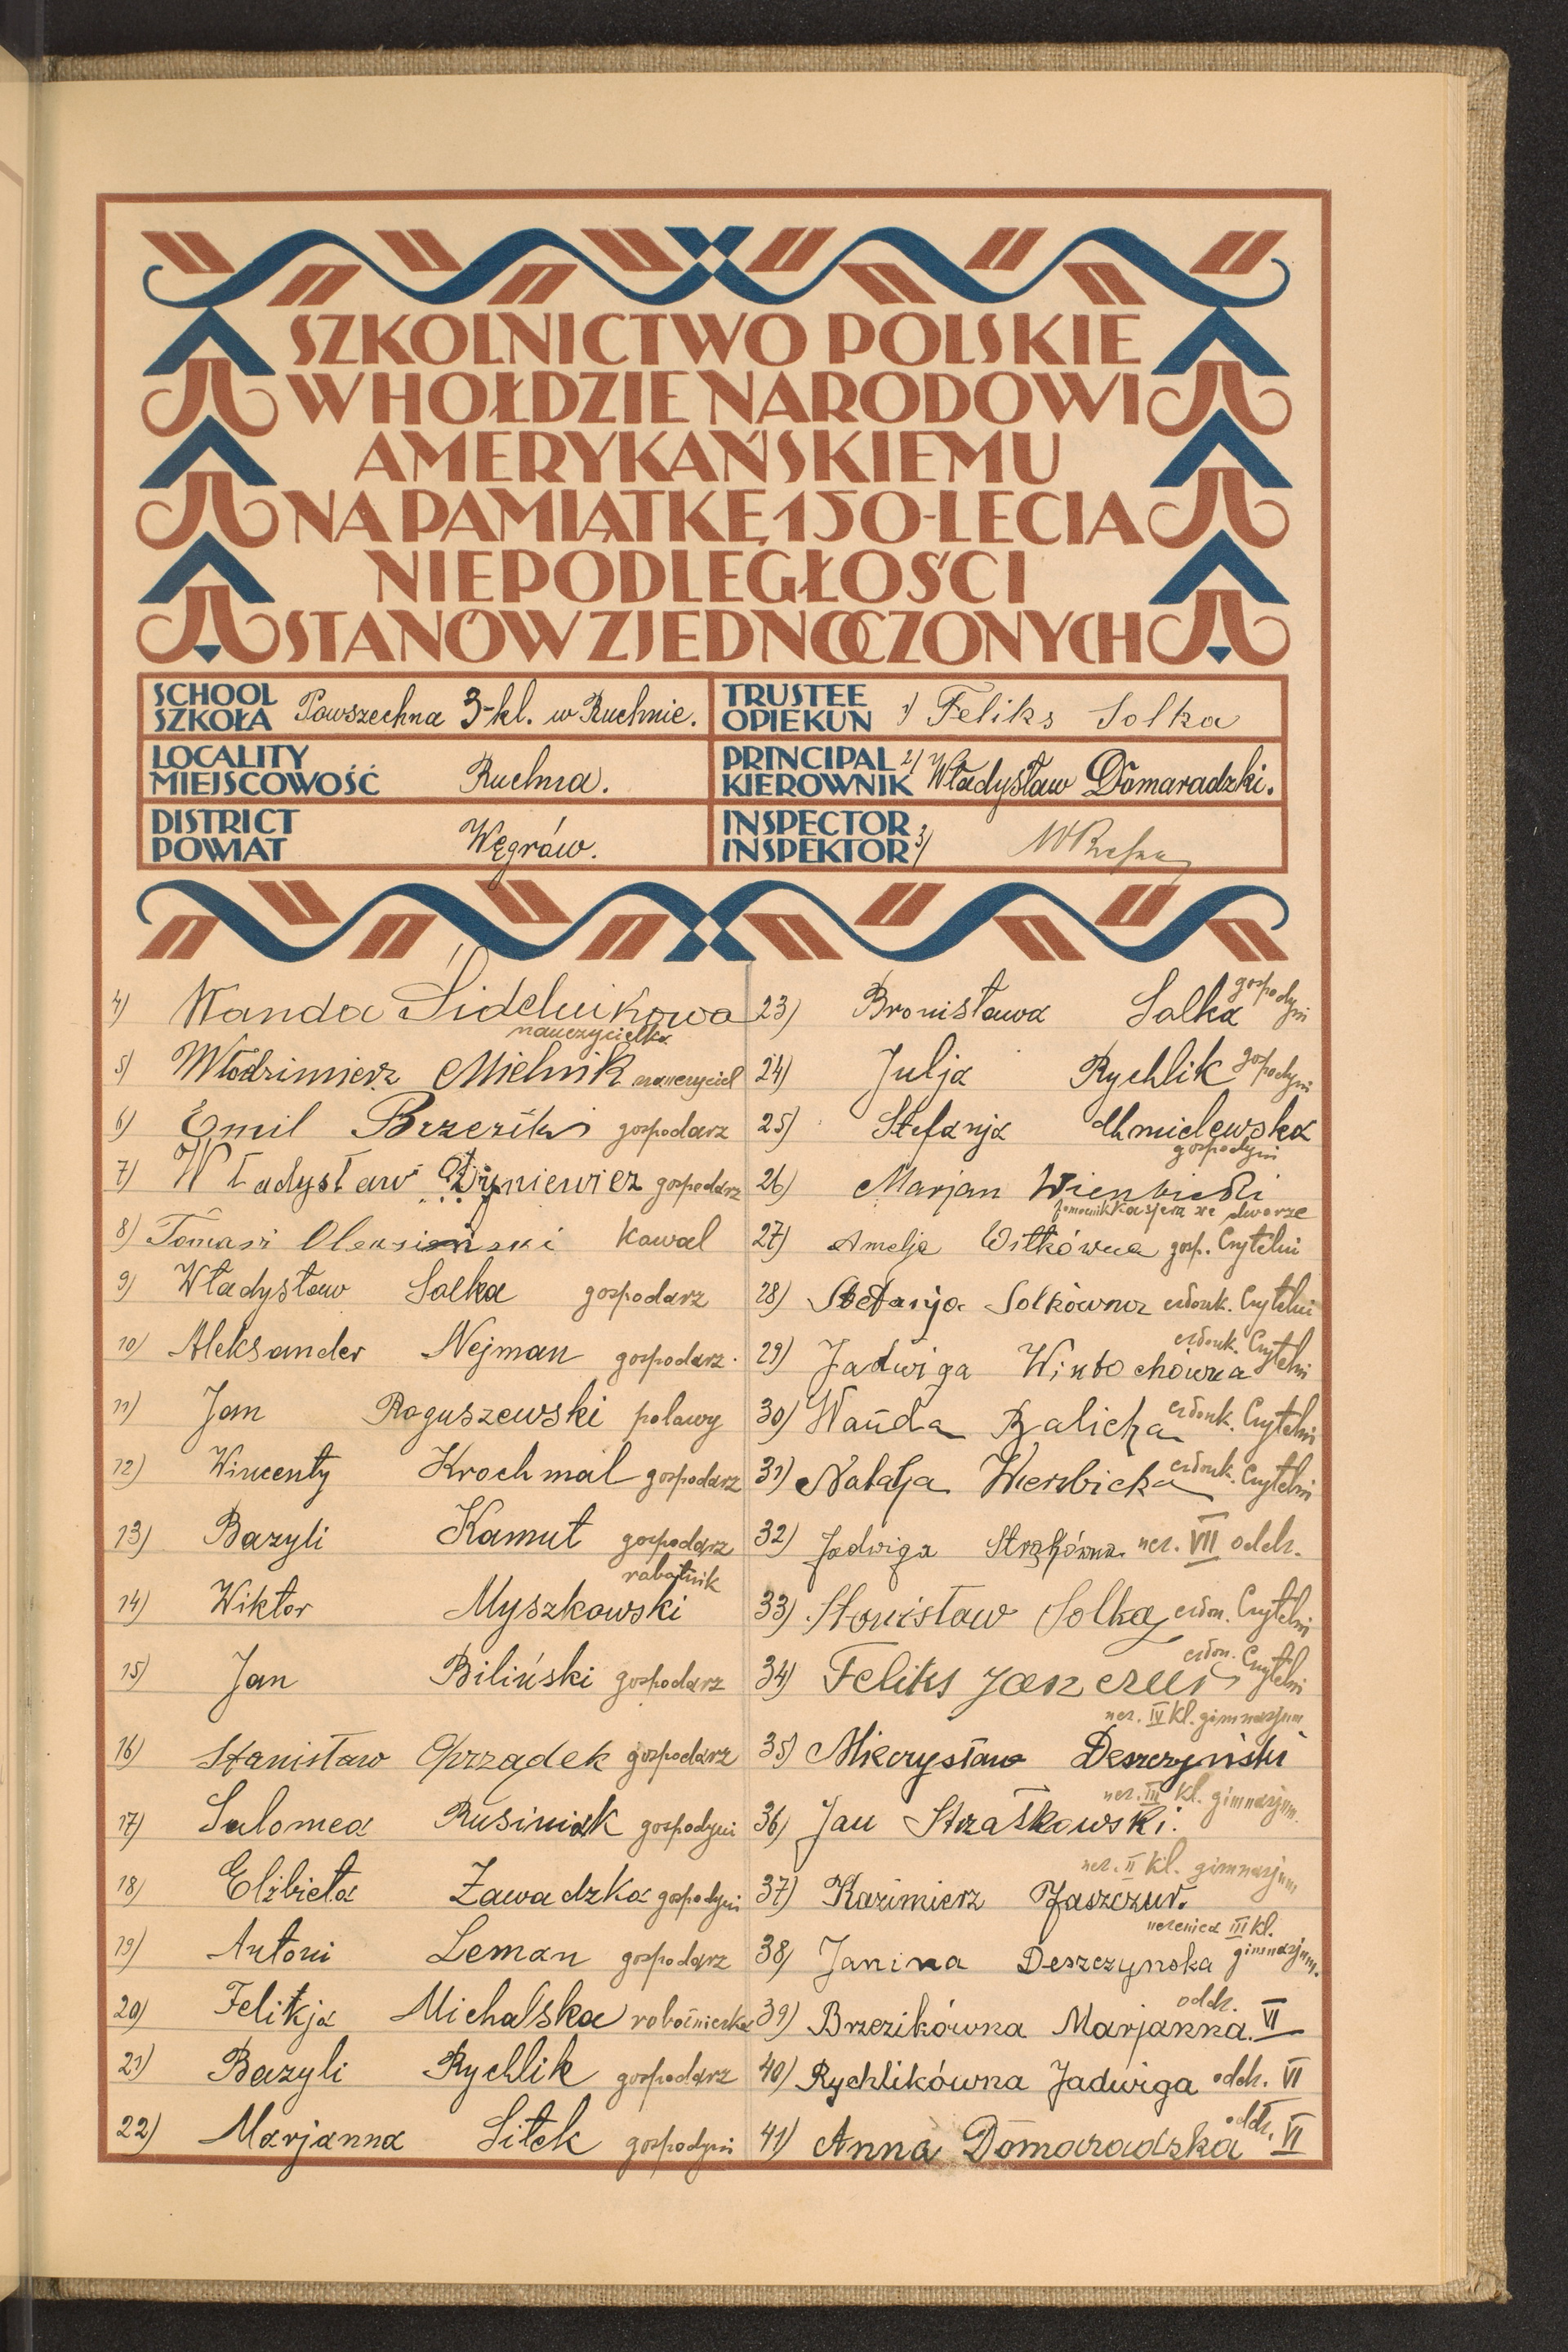 SZKOLNICTWO POLSKIE
W HOŁDZIE NARODOWI
AMERYKAŃSKIEMU
NA PAMIĄTKĘ 150-LECIA
NIEPODLEGŁOŚCI
STANÓW ZJEDNOCZONYCH
SCHOOL
SZKOŁA Powszechna 3-kl. w Ruchnie.
TRUSTEE
OPIEKUN 1) Feliks Solka
LOCALITY
MIEJSCOWOŚĆ Ruchna.
PRINCIPAL
KIEROWNIK 2) Władysław Domaradzki.
DISTRICT
POWIAT Węgrów.
INSPECTOR
INSPEKTOR 3)
4) Wanda Sidelnikowa
nauczycielka
5) Włodzimierz Mielnik nauczyciel
6) Emil Brzezik gospodarz
7) Władysław gospodarz
8) Tomasz kowal
9) Władysław Solka gospodarz
10) Aleksander Nejman gospodarz.
11) Jan Roguszewski polowy
12) Wincenty Krochmal gospodarz
13) Bazyli Kamut gospodarz
robotnik
14) Wiktor Myszkowski
15) Jan Biliński gospodarz
16) Stanisław Oprządek gospodarz
17) Salomea Rusiniak gospodyni
18) Elżbieta Zawadzka gospodyni
19) Antoni Leman gospodarz
20) Felikja Michalska robotnica
21) Bazyli Rychlik gospodarz
22) Marjanna Sitek gospodyni
23) Bronisława Solka gospodyni
24) Julja Rychlik gospodyni
25) Stefanja Chmielewska
gospodyni
26) Marjan Wierzbicki
pomocnik kasjera we dworze
27) Amelja Witkówna gosp. Czytelni
28) Stefanja Solkówna członk. Czytelni
29) Jadwiga członk. Czytelni
30) Wanda Balicka członk. Czytelni
31) Natalja Wierzbicka członk. Czytelni
32) Jadwiga ucz. VII oddz.
33) Stanisław Solka człon. Czytelni
34) Feliks Janczur człon. Czytelni
ucz. IV kl. gimnazjum
35) Mieczysław Deszczyński
ucz. III kl. gimnazjum
36) Jan Strażkowski.
ucz. II kl. gimnazjum
37) Kazimierz Jaszczur.
uczenica III kl.
38) Janina Deszczynska gimnazjum.
oddz.
39) Brzezikówna Marjanna. VI
40) Rychlikówna Jadwiga oddz. VI
41) Anna Domaradzka oddz. VI